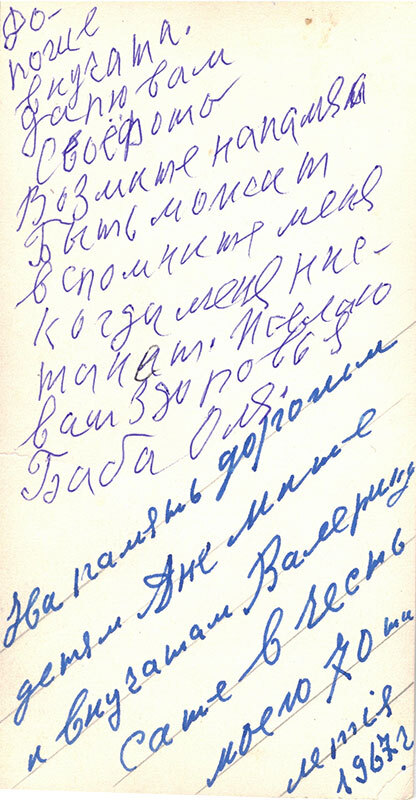 До-
рогие
внучата.
Дарю вам
своё фото
Возмите напамять
Бытьможит
вспомните меня
когда меня нис-
танет. Желаю
вам здоровья
Баба Оля.
На память дорогим
детям Ане Мите
и внучатам Валерику
Саше в честь
моего 70 ти
летия
1967 г